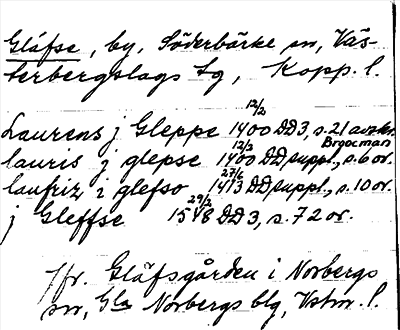 Gläfse, by, Söderbärke sn, Väs-
terbergslags tg, Kopp. l.
Laurens j Gleppe 12/2 1400 DD3, s. 21 avskr.
Brocman
lauris j glepse 12/2 1400 DD suppl., s. 6 or.
laufriz i glefso 27/6 1413 DD suppl., s. 10 or.
j Gleffse 29/2 1548 DD 3, s. 72 or.
Jfr. Gläfsgården i Norbergs
sn, Gla Norbergs blg, Vstm. l.